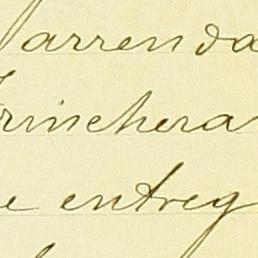 arrenda
rinchera
e entreg